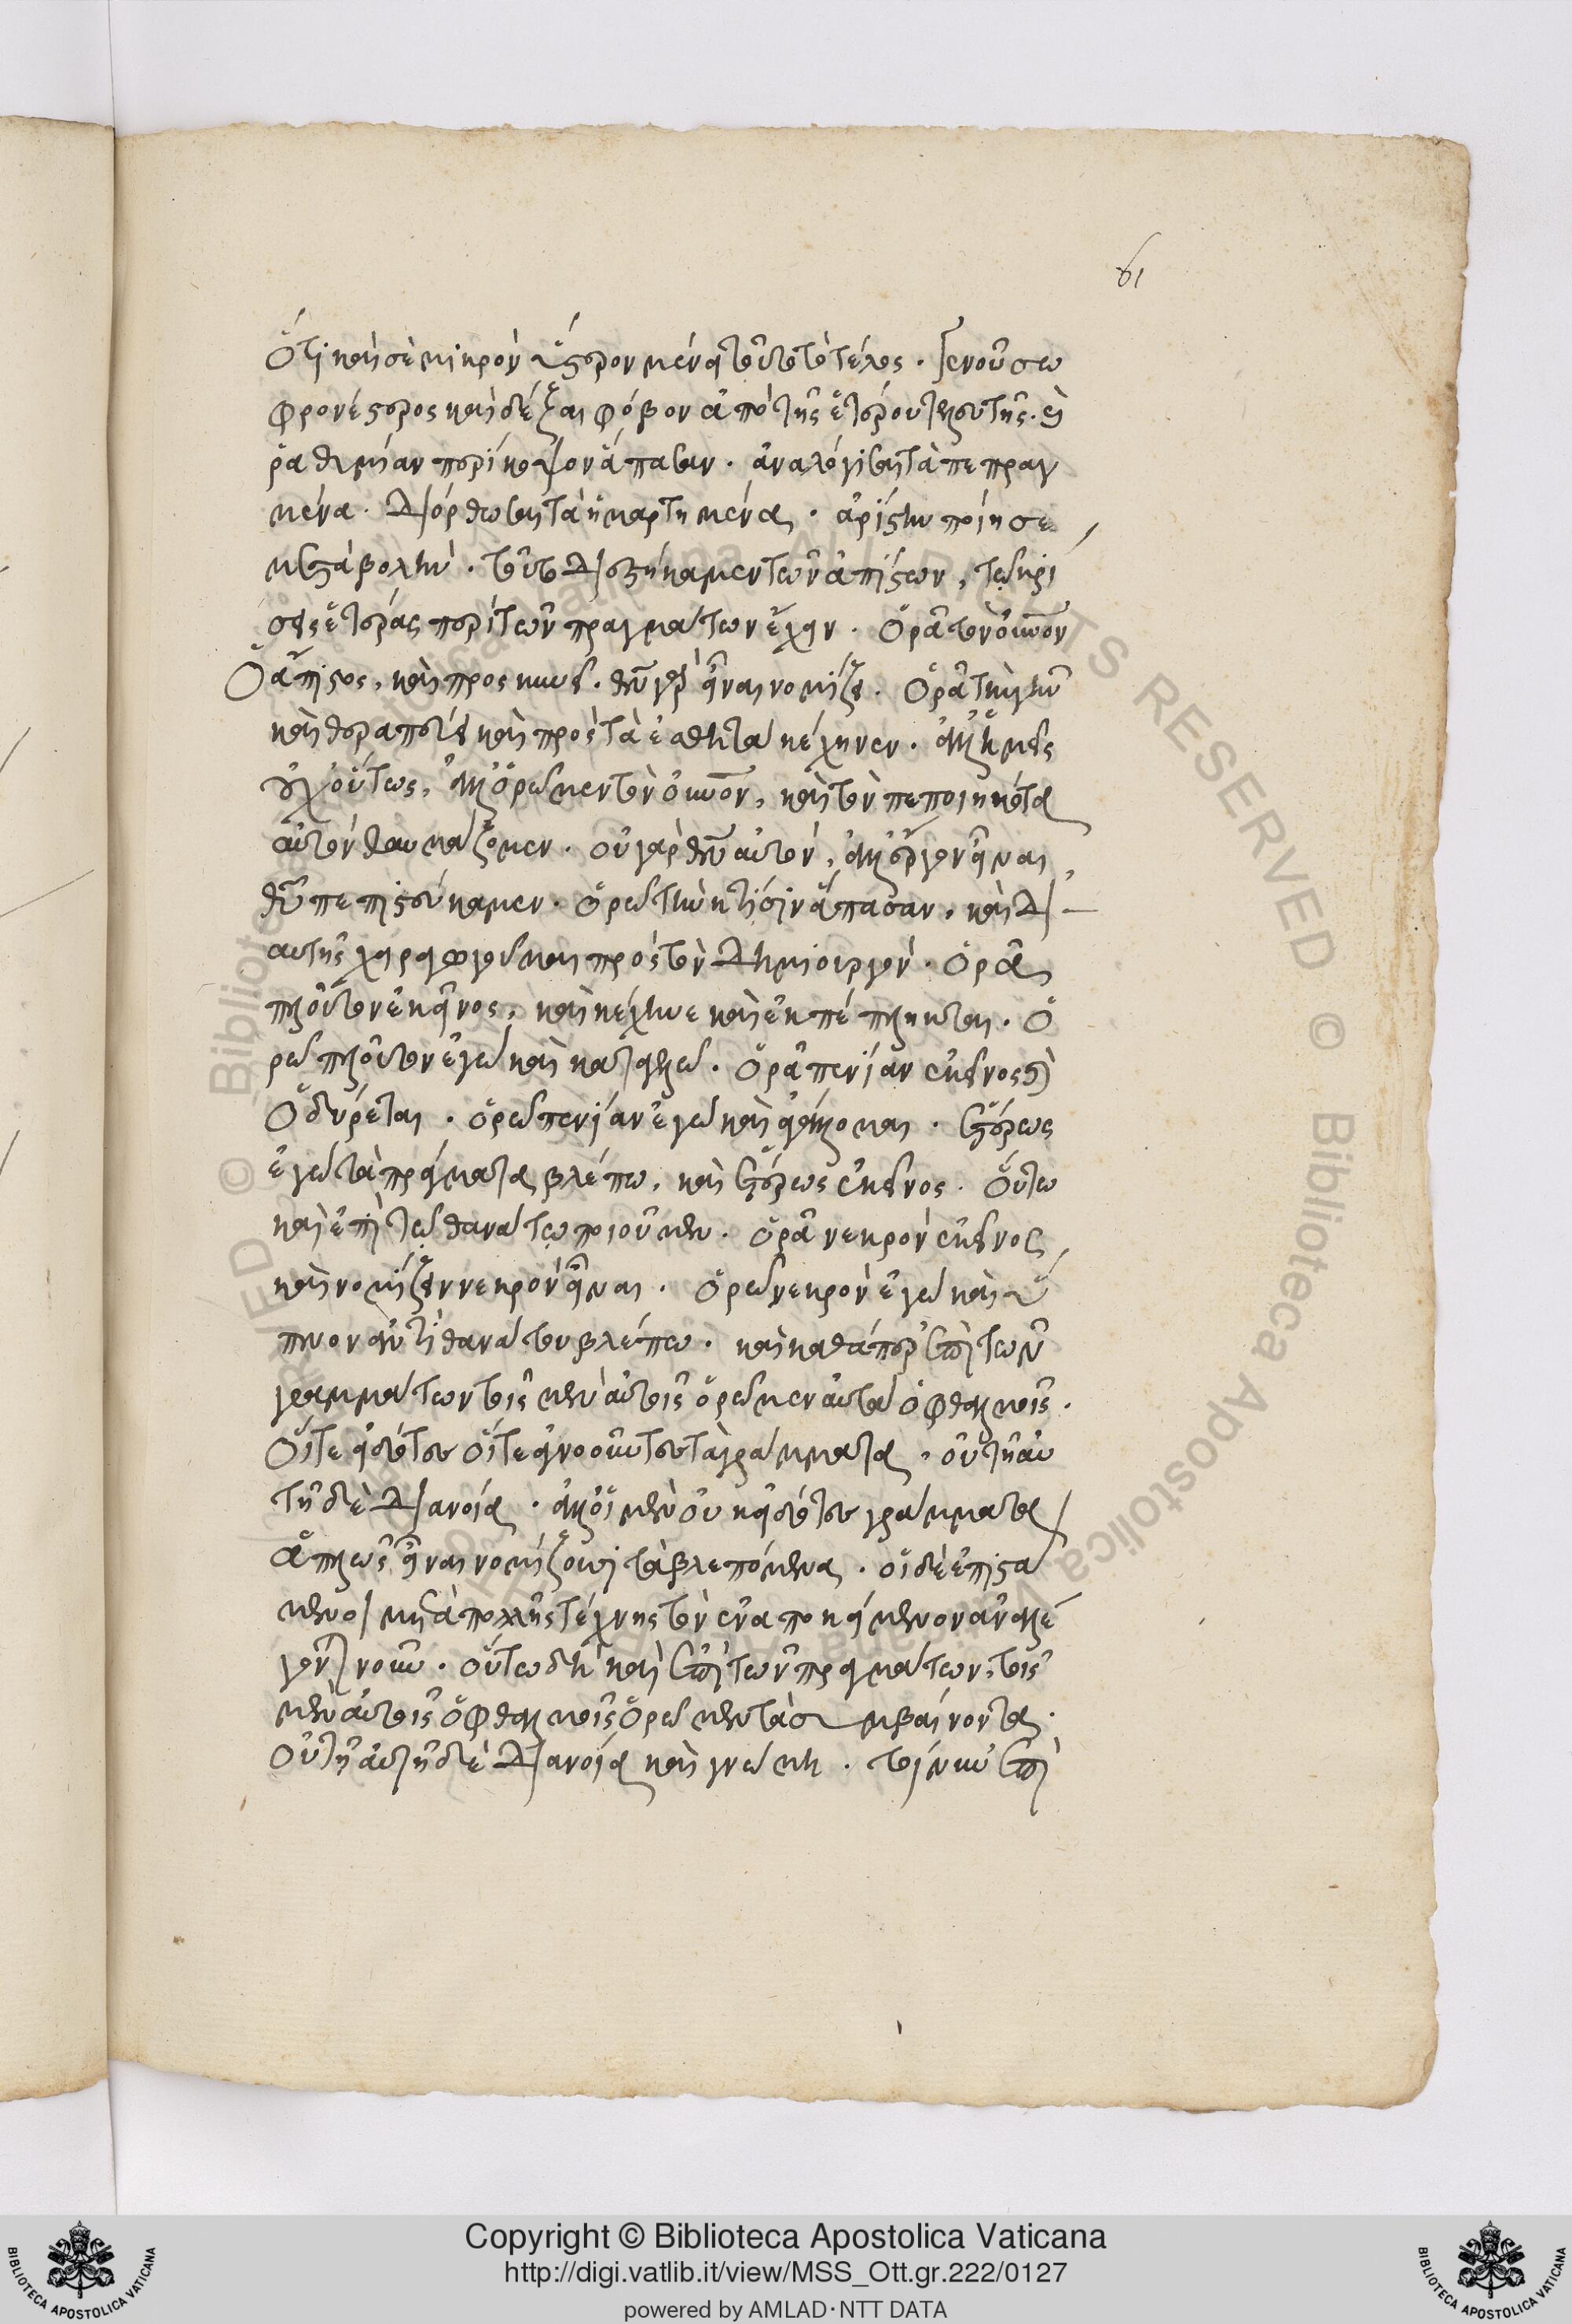 61
Ὅτι καὶ σὲ μικρὸν ὕστερον μένει τοῦτο τὸ τέλος. γενοῦ σω
φρονέστερος καὶ δέξαι φόβον ἀπὸ τῆς ἑτέρου τελευτῆς. καὶ
ῥαθυμίαν περίκοψον ἅπασαν. ἀναλόγισαι τὰ πεπραγ
μένα. διόρθωσαι τὰ ἡμαρτημένα. ἀρίστην ποίησαι
μεταβολήν. τούτω διεστήκαμεν τῶν ἀπίστων, τῷ κρί
σεις ἑτέρας περὶ τῶν πραγμάτων ἔχειν. Ὁρᾷ τὸν οὐρανὸν
Ὁ ἄπιστος, καὶ προσκυνεῖ. θεὸν γὰρ εἶναι νομίζει. Ὁρᾷ τὴν γῆν
καὶ θεραπεύει καὶ πρὸς τὰ αἰσθητὰ κέχηνεν. ἀλλ' ἡμεῖς
οὐχ οὕτως, ἀλλ' ὁρῶμεν τὸν οὐρανὸν, καὶ τὸν πεποιηκότα
αὐτὸν θαυμάζομεν. οὐ γὰρ θεὸν αὐτὸν, ἀλλ' ἔργον εἶναι
θεοῦ πεπιστεύκαμεν. ὁρῶ τὴν κτίσιν ἅπασαν, καὶ δι
αὐτῆς χειραγωγοῦμαι πρὸς τὸν δημιουργόν. ὁρᾷ
πλοῦτον ἐκεῖνος, καὶ κέχηνε καὶ ἐκπέπληκται. Ὁ
ρῶ πλοῦτον ἐγὼ καὶ καταγελῶ. Ὁρᾷ πενίαν ἐκεῖνος καὶ
Ὀδύρεται. ὁρῶ πενίαν ἐγὼ καὶ ἀγάλλομαι. ἑτέρως
ἐγὼ τὰ πράγματα βλέπω, καὶ ἑτέρως ἐκεῖνος. Οὕτω
καὶ ἐπὶ τῷ θανάτῳ ποιοῦμεν. ὁρᾷ νεκρὸν ἐκεῖνος
καὶ νομίζει νεκρὸν εἶναι. ὁρῶ νεκρὸν ἐγὼ καὶ ὕ
πνον ἀντὶ θανάτου βλέπω. καὶ καθάπερ ἐπὶ τῶν
γραμμάτων τοῖς μὲν αὐτοῖς ὁρῶμεν αὐτὰ ὀφθαλμοῖς.
Οἵ τε εἰδότες οἵ τε ἀγνοοῦντες τὰ γράμματα, οὐ τῇ αὐ
τῇ δὲ διανοίᾳ. ἀλλ' οἱ μὲν οὐκ εἰδότες γράμματα
ἁπλῶς εἶναι νομίζουσι τὰ βλεπόμενα. οἱ δὲ ἐπιστά
μενοι μετὰ πολλῆς τέχνης τὸν ἐναποκείμενον ἀναλέ
γονται νοῦν. οὕτω δὴ καὶ ἐπὶ τῶν πραγμάτων, τοῖς
μὲν αὐτοῖς ὀφθαλμοῖς ὁρῶμεν τὰ συμβαίνοντα.
Οὐ τῇ αὐτῇ δὲ διανοίᾳ καὶ γνώμῃ. τοίνυν ἐπὶ
Copyright © Biblioteca Apostolica Vaticana
http://digi.vatlib.it/view/MSS_Ott.gr.222/0127
powered by AMLAD·NTT DATA